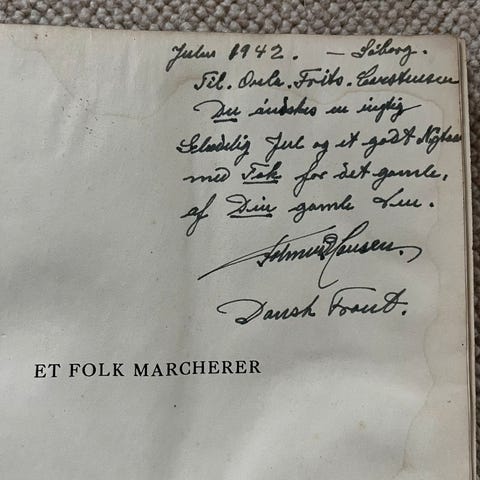 Julen 1942. - Søborg.
Til. Onkel. Frits. Carstensen
Du ønskes en rigtig
Glædelig Jul og et godt Nytaar
med Tak for det gamle,
af Din gamle Ven.
Hansen.
Dansk Front.
ET FOLK MARCHERER